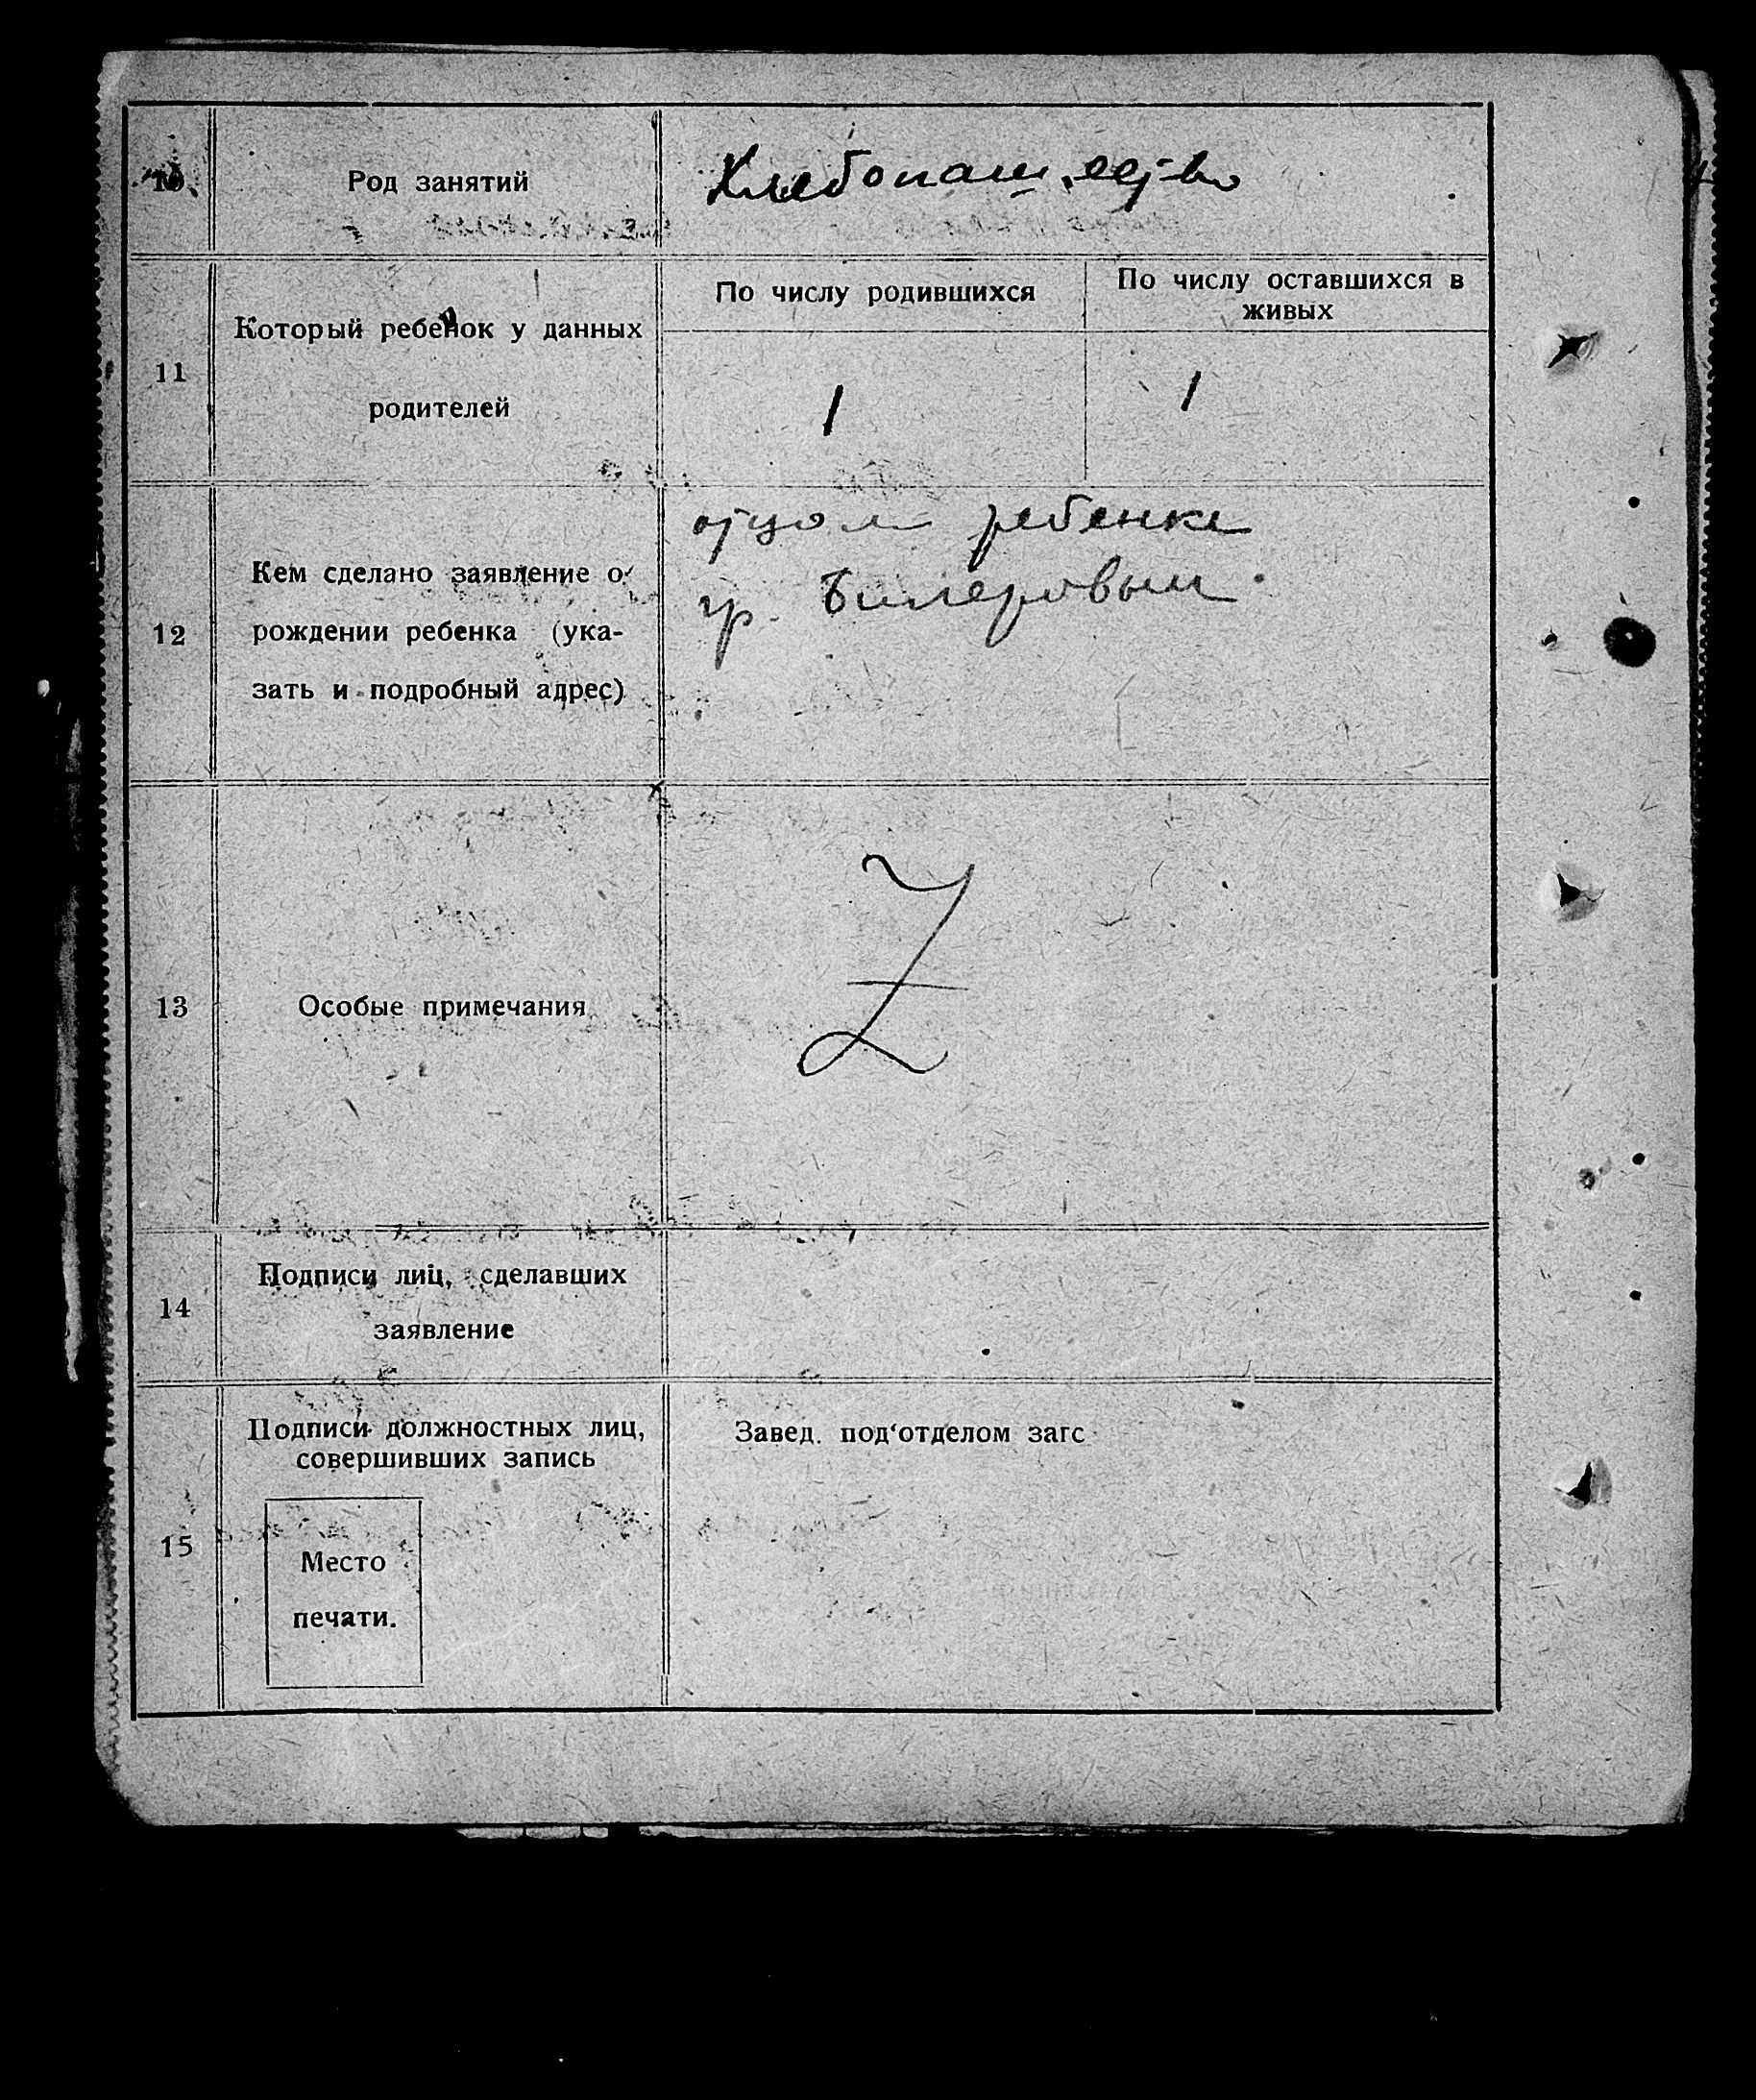 10
Род занятий
Хлебопашество
11
Который ребенок у данных
родителей
По числу родившихся
По числу оставшихся в
живых
1
1
12
Кем сделано заявление о
рождении ребенка (ука-
зать и подробный адрес)
отцом ребенка
гр.
13
Особые примечания
Z
14
Подписи лиц, сделавших
заявление
15
Подписи должностных лиц,
совершивших запись
Место
печати.
Завед. под‘отделом загс